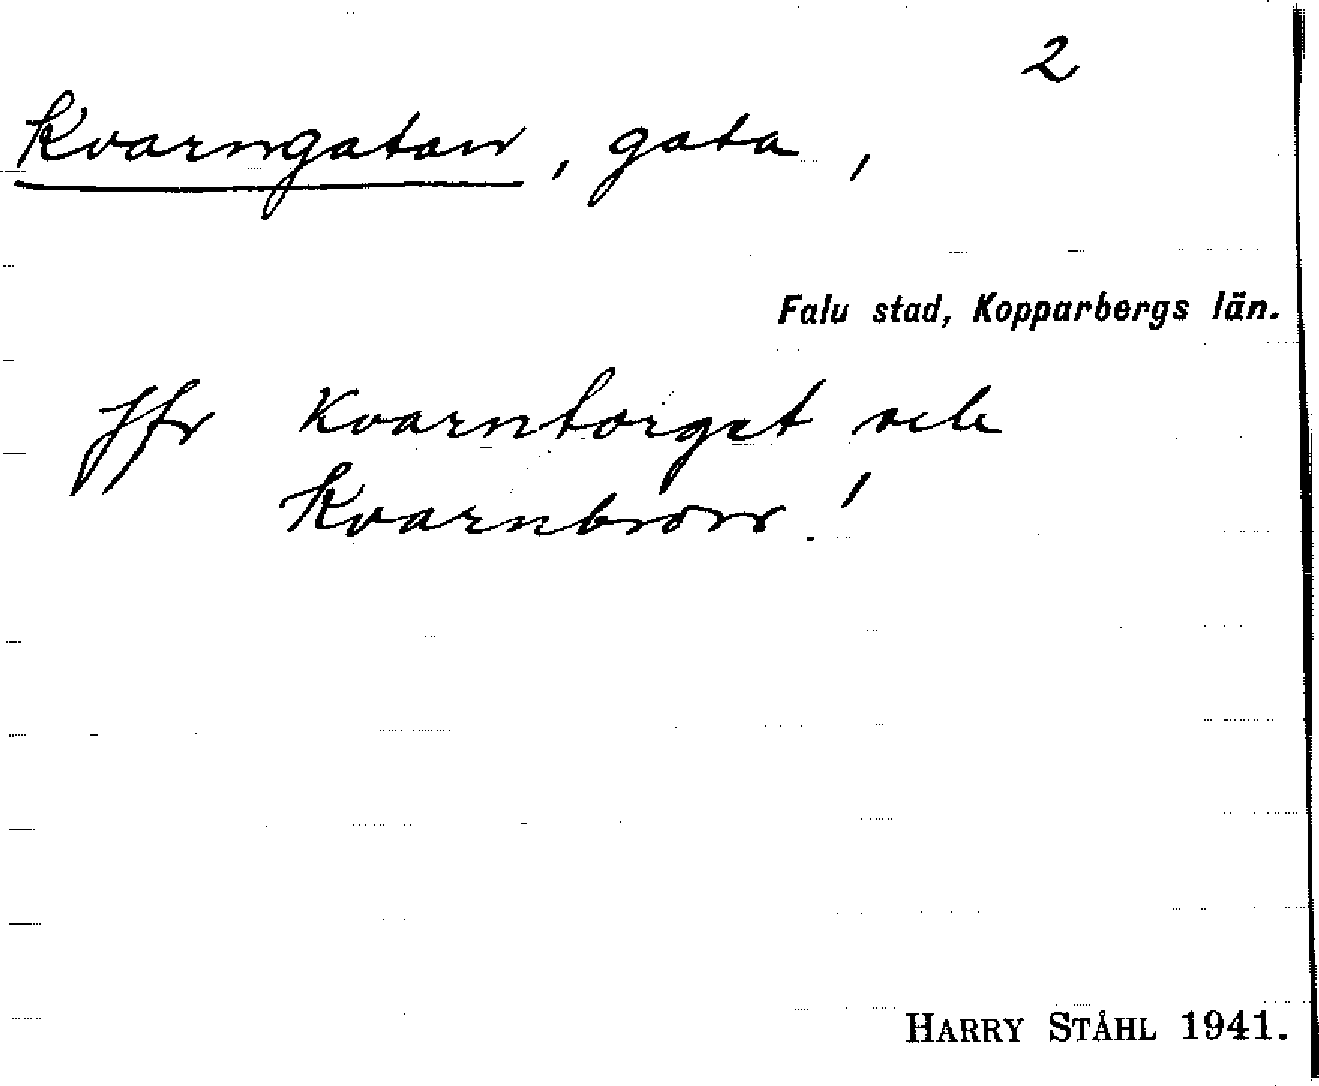 2
Kvarngatan, gata,
Falu stad, Kopparbergs län.
Jfr Kvarntorget och
Kvarnbron!
HARRY STÅHL 1941.